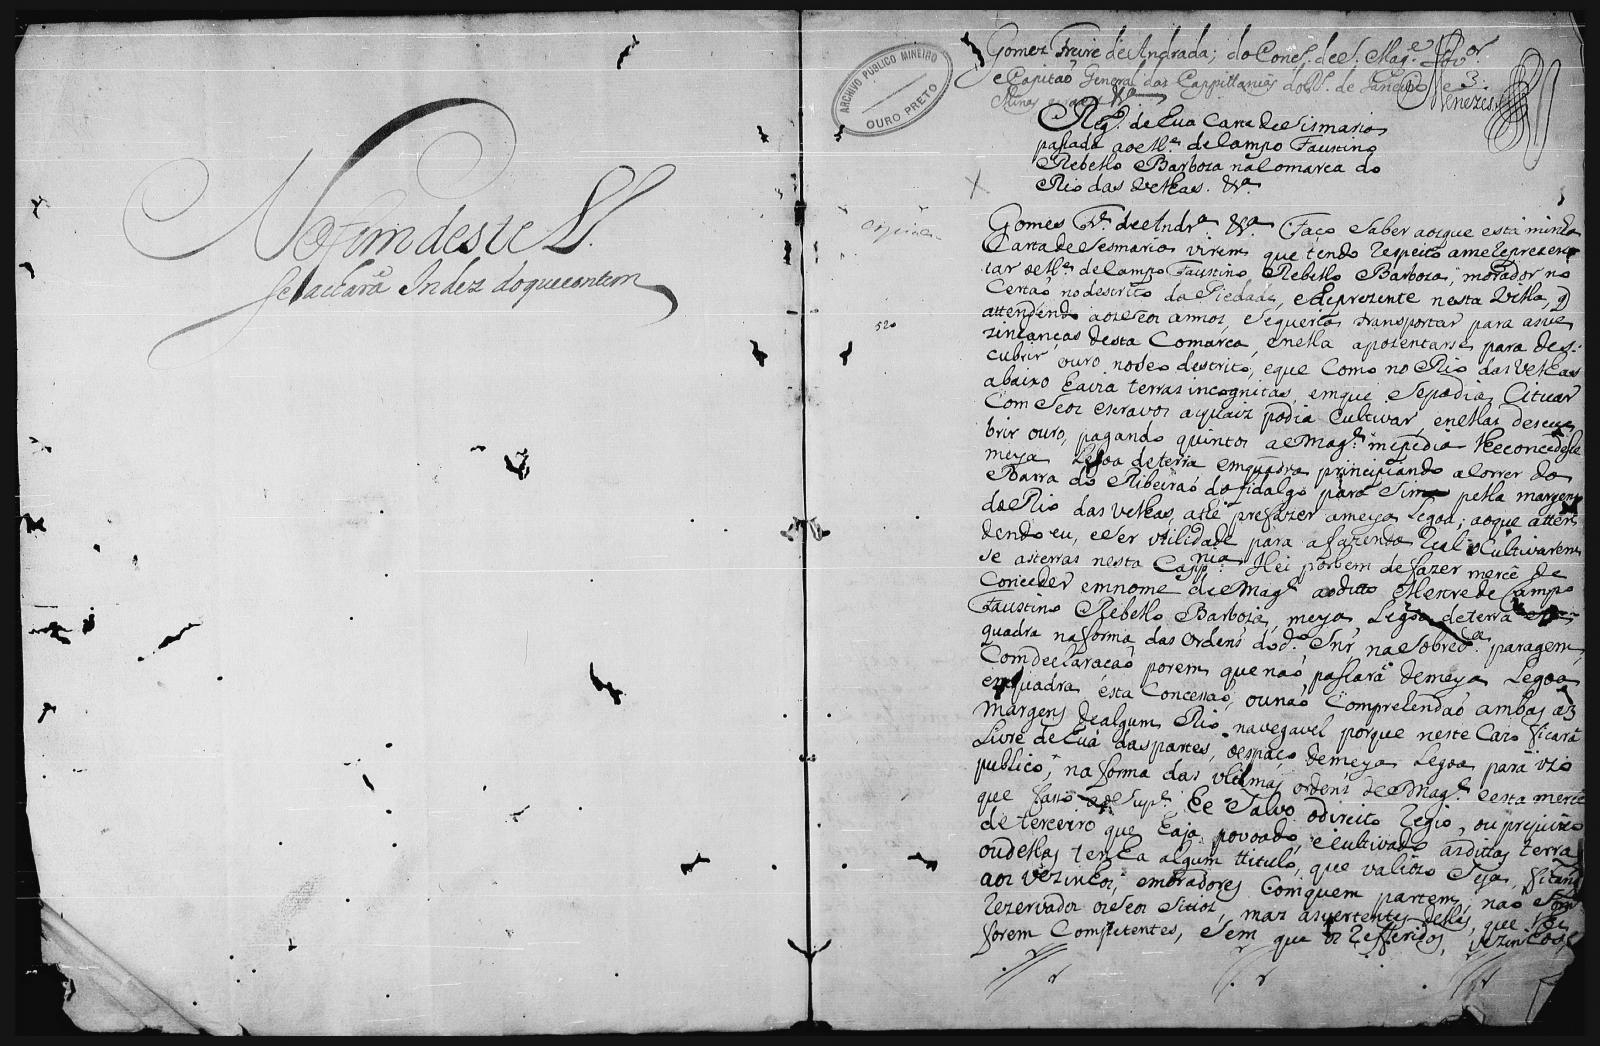 No fim deste L.º
se achará Index do que contem
ARCHIVO PUBLICO MINEIRO
OURO PRETO
Gomez Freire de Andrada; do Cons.º de S. Mag.e Gov.or
e Capitaõ General das Cappittanias do R.º de Janeiro e
Minas geraes &.a
Menezes
Reg.º de hua Carta de Sismaria
passada ao M.e de Campo Faustino
Rebello Barboza na Comarca do
Rio das Velhas. &.a
Gomes Fr.e de Andr.a &.a Faço Saber aos que esta minha
Carta de Sesmaria virem que tendo respeito a me reprezen
tar o M.e de Campo Faustino Rebello Barboza, morador no
Certaõ no destrito da Piedade, e de prezente nesta Villa, q
attendendo aos seos annos, se queria transportar para as ve
zinhanças desta Comarca, e nella apozentarse para des
cubrir ouro no seo destrito, e que Como no Rio das Velhas
abaixo havia terras incognitas, em que se podia Cituar
Com seos escravos a quaiz podia Cultivar, e nellas descu
brir ouro, pagando quintos a S. Mag.e me pedia lhe concedesse
meya Legoa de terra em quadra principiando a Correr da
Barra do Ribeiraõ do fidalgo para sima pella margem
do Rio das Velhas, athé prefazer a meya Legoa; ao que atten
dendo eu, e ser utilidade para a fazenda Real o Cultivarem
se as terras nesta Capp.nia Hei por bem de fazer mercê de
Conceder em nome de S. Mag.e ao ditto Mestre de Campo
Faustino Rebello Barboza, meya Legoa de terra em
quadra na forma das Ordens do d.º Snr na sobred.a paragem,
Com declaraçaõ porem que naõ passará de meya Legoa
em quadra esta Concessaõ, ou naõ Comprehendaõ ambas as
Margens de algum Rio navegavel porque neste Cazo ficará
Livre de huá das partes, o espaço de meya Legoa para uzo
publico, na forma das ultimas ordens de S. Mag.e e esta mercê
que faço ao Sup.e he Salvo o direito Regio, ou prejuizo
de terceiro que haja povoado, e cultivado as dittas terras
ou dellas tenha algum titulo, que valiozo seja, ficando
aos vezinhos, e moradores Com quem partem,
rezervados os seos Sitios, mas as vertentes dellas, que
forem Competentes, e sem que os refferidos, vezinhos